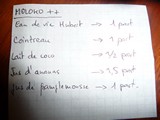 MOLOKO ++
Eau de vie Hubert → 1 part
Cointreau → 1 part
Lait de coco → 1/2 part
Jus d'ananas → 1,5 part
Jus de pamplemousse → 1 part.